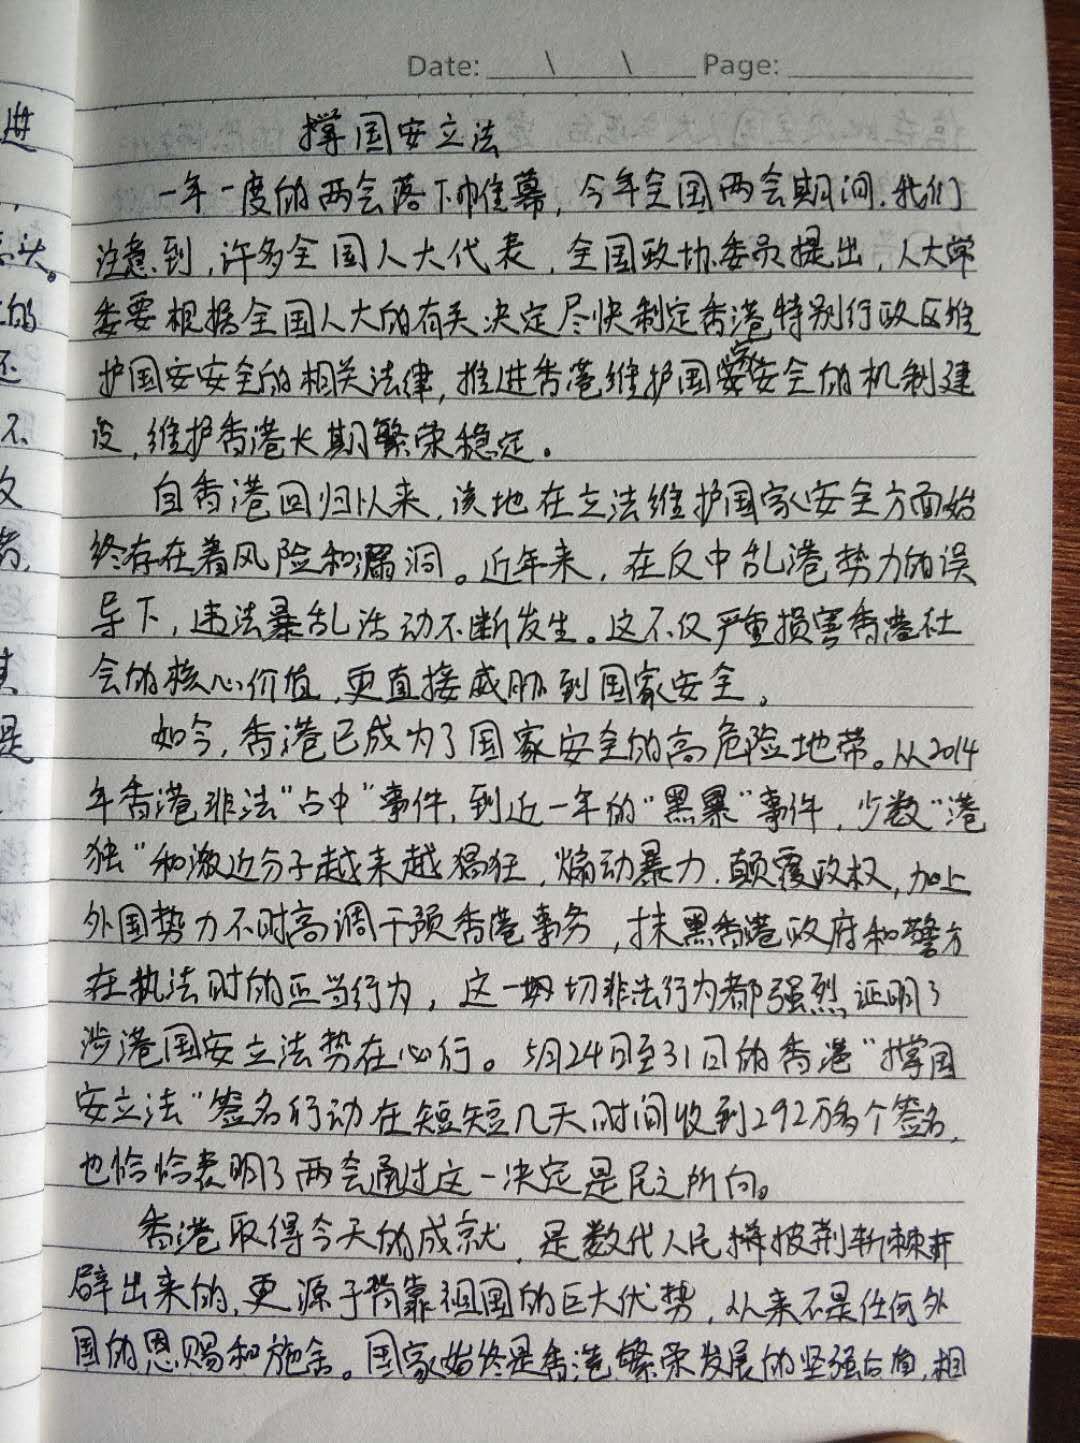 Date: \ \ Page:
撑国安立法
一年一度的两会落下帷幕，今年全国两会期间，我们
注意到，许多全国人大代表，全国政协委员提出，人大常
委要根据全国人大的有关决定尽快制定香港特别行政区维
护国安安全的相关法律，推进香港维护国家安全的机制建
设，维护香港长期繁荣稳定。
自香港回归以来，该地在立法维护国家安全方面始
终存在着风险和漏洞。近年来，在反中乱港势力的误
导下，违法暴乱活动不断发生。这不仅严重损害香港社
会的核心价值，更直接威胁到国家安全。
如今，香港已成为了国家安全的高危险地带。从2014
年香港非法"占中"事件，到近一年的"黑暴"事件，少数"港
独"和激近分子越来越猖狂，煽动暴力，颠覆政权，加上
外国势力不时高调干预香港事务，抹黑香港政府和警方
在执法时的正当行为，这一切非法行为都强烈证明了
涉港国安立法势在必行。5月24日至31日的香港"撑国
安立法"签名行动在短短几天时间收到292万多个签名，
也恰恰表明了两会通过这一决定是民之所向。
香港取得今天的成就，是数代人民拼披荆斩棘开
辟出来的，更源于背靠祖国的巨大优势，从来不是任何外
国的恩赐和施舍。国家始终是香港繁荣发展的坚强后盾，相
进
头。
的
还
不
是